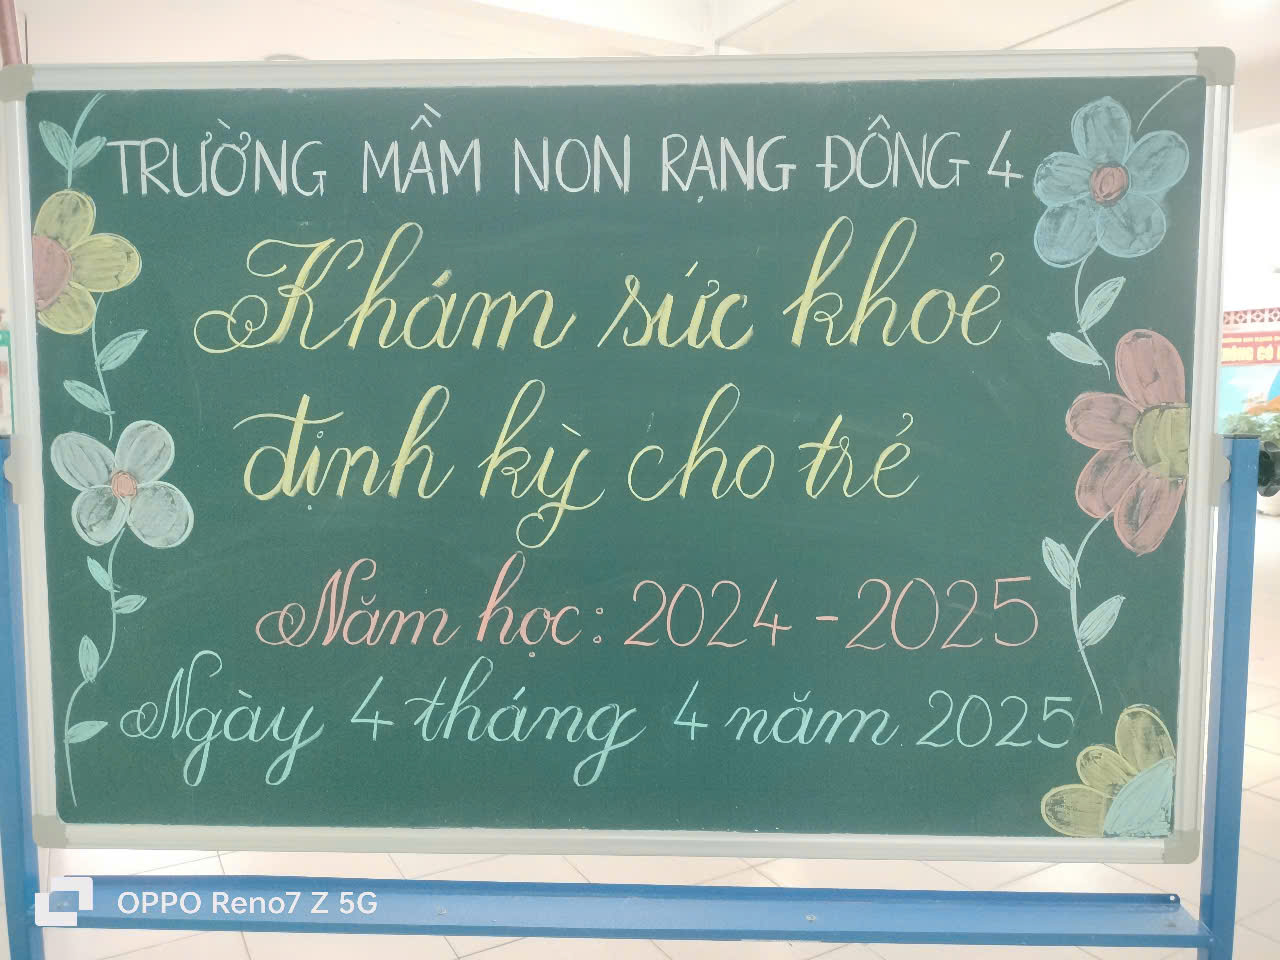 TRƯỜNG MẦM NON RẠNG ĐÔNG 4
Khám sức khoẻ
định kỳ cho trẻ
Năm học: 2024 - 2025
Ngày 4 tháng 4 năm 2025
OPPO Reno7 Z 5G